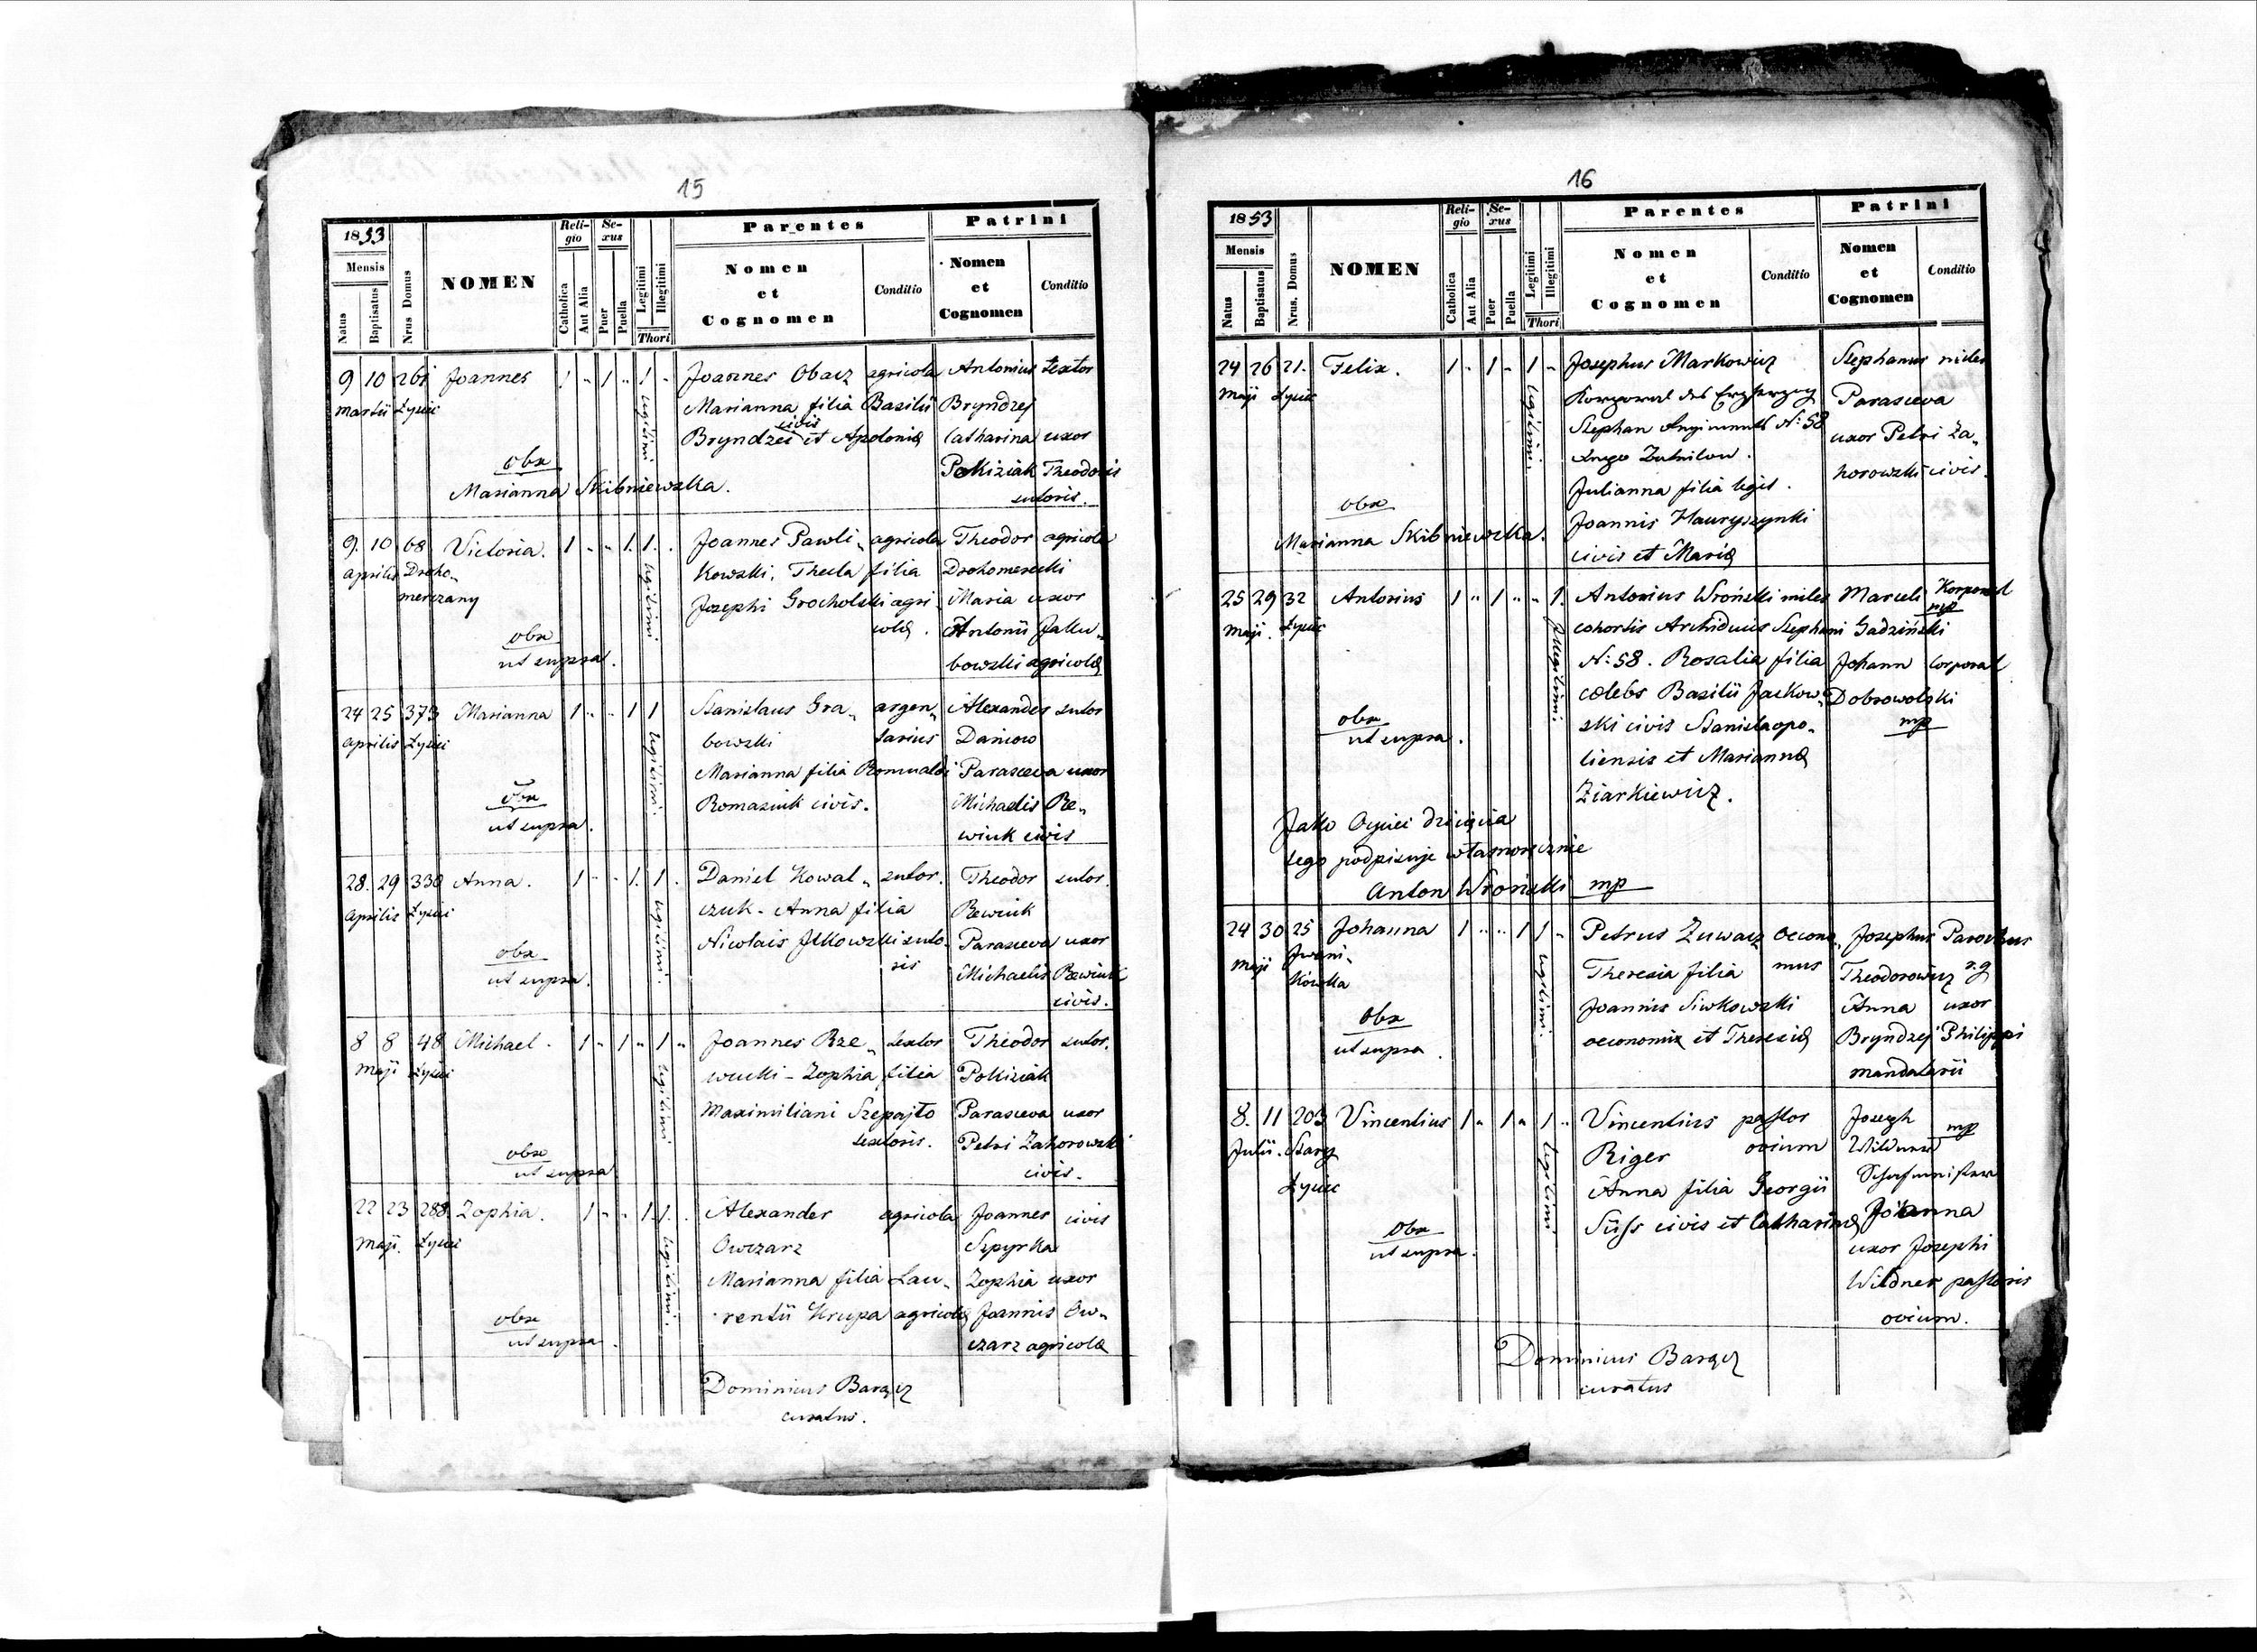 15
1853
Mensis
Natus
Baptisatus
Nrus Domus
NOMEN
Religio
Catholica
Aut Alia
Sexus
Puer
Puella
Legitimi
Illegitimi
Thori
Parentes
Nomen
et
Cognomen
Conditio
Patrini
Nomen
et
Cognomen
Conditio
9 10 261 Joannes 1 " 1 " 1 " Joannes Obacz agricola Antonius textor
Martii Łysiec legitimi Marianna filia Basilii Bryndzej
civis
Bryndzei et Apoloniæ Catharina uxor
obx Pokiziak Theodoris
Marianna Skibniewska. sutoris.
9. 10 68 Victoria. 1 " " 1. 1. . Joannes Pawli„ agricola Theodor agricola
Aprilis Droho„ legitimi kowski, Thecla filia Drohomerecki
merczany Josephi Grocholski agri„ Maria uxor
obx colæ. Antonii Jaku„
ut supra. bowski agricolæ
24 25 373 Marianna 1 " " 1 1 Stanislaus Gra„ argen„ Alexander sutor
Aprilis Łysiec legitimi. bowski tarius Daniow
Marianna filia Romualdi Parasceva uxor
obx Romaniuk civis. Michaelis Re„
ut supra. wiuk civis
28. 29 330 Anna. 1 " " 1. 1. Daniel Kowal„ sutor. Theodor sutor.
Aprilis Łysiec legitimi. czuk. Anna filia Rewiuk
Nicolais Jłkowski suto„ Parasceva uxor
obx ris Michaelis Rewiuk
ut supra. civis.
8 8 48 Michael. 1 " 1 " 1 " Joannes Rze„ textor Theodor sutor.
Maji Łysiec legitimi wucki - Zophia filia Pokiziak
Maximiliani Szepajto Parasceva uxor
obx textoris. Petri Zahorowski
ut supra civis.
22 23 288. Zophia. 1 " " 1. 1. . Alexander agricola Joannes civis
Maji. Łysiec legitimi. Owczarz Szpyrka
Marianna filia Lau„ Zophia uxor
obx rentii Krupa agricolæ Joannis Ow„
ut supra. czarz agricolæ
Dominicus Barącz
curatus.
16
1853
Mensis
Natus
Baptisatus
Nrus. Domus
NOMEN
Religio
Catholica
Aut Alia
Sexus
Puer
Puella
Legitimi
Illegitimi
Thori
Parentes
Nomen
et
Cognomen
Conditio
Patrini
Nomen
et
Cognomen
Conditio
24 26 21. Felix. 1 " 1 " 1 " Josephus Markowicz Stephanus miles
Maji Łysiec legitimi. Korporal des Erzherzog Parasceva
Stephan N: 58 uxor Petri Za„
horowski civis.
Julianna filia legit.
obx Joannis Hauryszynki
Marianna Skibniewska. civis et Mariæ
25 29 32 Antonius 1 " 1 " " 1. Antonius Wroński miles Marceli Korporal
mp
Maji. Łysiec Illegitimi. cohortis Archiducis Stephani Gadziński
N: 58. Rosalia filia Johann Corporal
cælebs Basilii Jackow„ Dobrowolski
obx ski civis Stanislaopo„ mp
ut supra. liensis et Mariannæ
Ziarkiewicz.
Jako Oyciec dziecięcia
tego podpisuje własnoręcznie
Anton Wroński mp
24 30 25 Johanna 1 " " 1 1 " Petrus Zuwacz oecono„ Josephus Parochus
Maji Jwani„ legitimi. Theresia filia mus Theodorowicz r.g
kówka Joannis Siwkowski Anna uxor
obx oeconomi et Theresiæ Bryndzej Philippi
ut supra. mandatarii
8. 11 203 Vincentius 1 " 1 " 1 " Vincentius pastor Joseph mp
Julii. Stary legitimi Riger ovium Wildner
Łysiec Anna filia Georgii Schafmeister
Süss civis et Catharinæ Joanna
obx uxor Josephi
ut supra. Wildner pastoris
ovium.
Dominicus Barącz
curatus